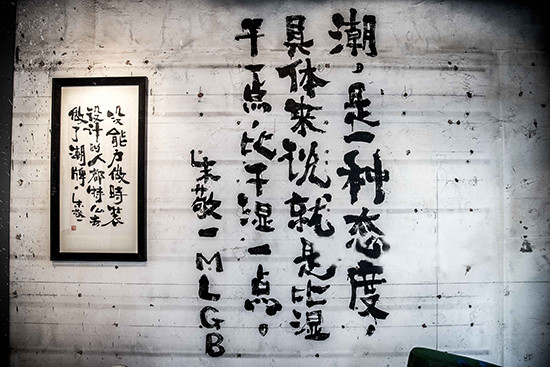 潮，是一种态度，
具体来说就是比湿
干一点，比干湿一点。
朱敬一MLGB
没能力做時装
设计的人都特么去
做了潮牌 朱敬一